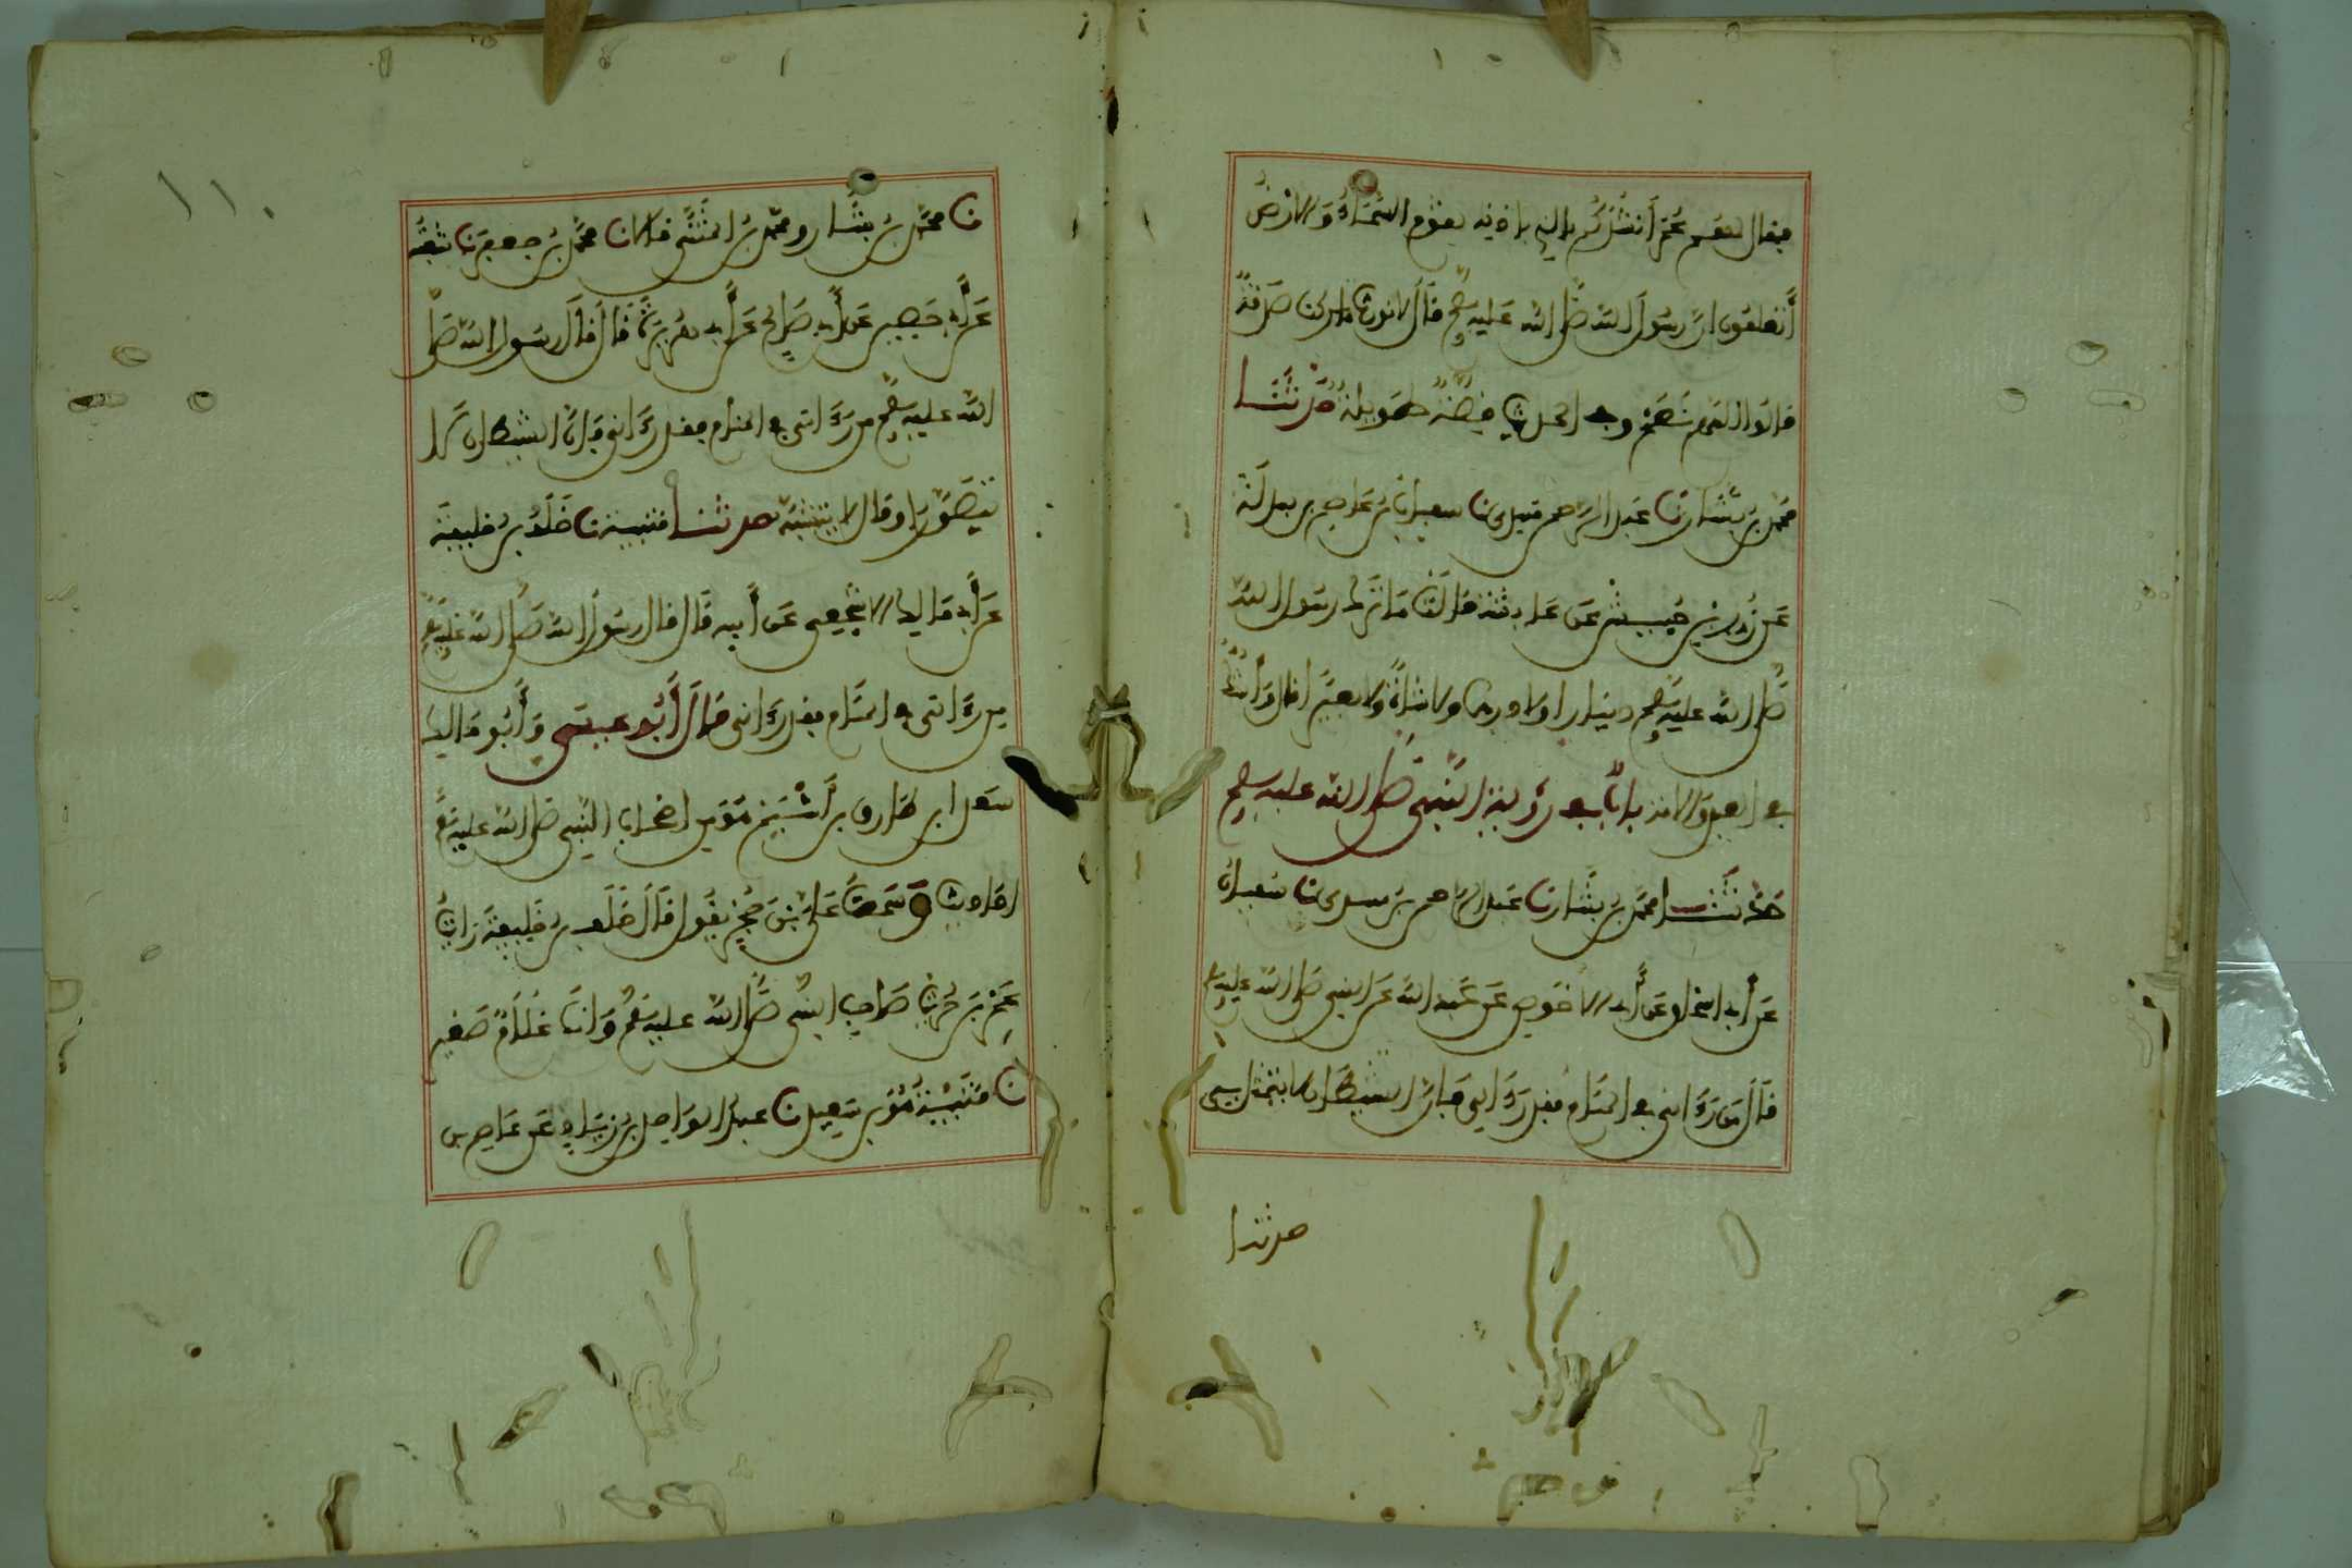 فقال لهم عمر أنشدكم بالذي بإذنه تقوم السماء والأرض
أتعلمون أن رسول الله صلى الله عليه وسلم قال لا نورث ما تركنا صدقة
قالوا اللهم نعم وفي الحديث قصة طويلة حدثنا
محمد بن بشار نا عبد الرحمن بن مهدي نا سفيان عن عاصم بن بهدلة
عن زر بن حبيش عن عائشة قالت ما ترك رسول الله
صلى الله عليه وسلم دينارا ولا درهما ولا شاة ولا بعيرا قال وأشك
في العبد والأمة باب في رؤية النبي صلى الله عليه وسلم
حدثنا محمد بن بشار نا عبد الرحمن بن مهدي نا سفيان
عن أبي إسحاق عن أبي الأحوص عن عبد الله عن النبي صلى الله عليه وسلم
قال من رءاني في المنام فقد رءاني فإن الشيطان لا يتمثل بي
حدثنا
١١٠
نا محمد بن بشار ومحمد بن المثنى قالا نا محمد بن جعفر نا شعبة
عن أبي حصين عن أبي صالح عن أبي هريرة قال قال رسول الله صلى
الله عليه وسلم من رءاني في المنام فقد رءاني فإن الشيطان لا
يتصور أو قال لا يتشبه حدثنا قتيبة نا خلف بن خليفة
عن أبي مالك الأشجعي عن أبيه قال قال رسول الله صلى الله عليه وسلم
من رءاني في المنام فقد رءاني قال أبو عيسى وأبو مالك
سعد ابن طارق بن أشيم هو من أصحاب النبي صلى الله عليه وسلم
أحاديث وسمعت علي بن حجر يقول قال خلف بن خليفة رأيت
عمرو بن حريث صاحب النبي صلى الله عليه وسلم وأنا غلام صغير
نا قتيبة هو بن سعيد نا عبد الواحد بن زياد عن عاصم بن